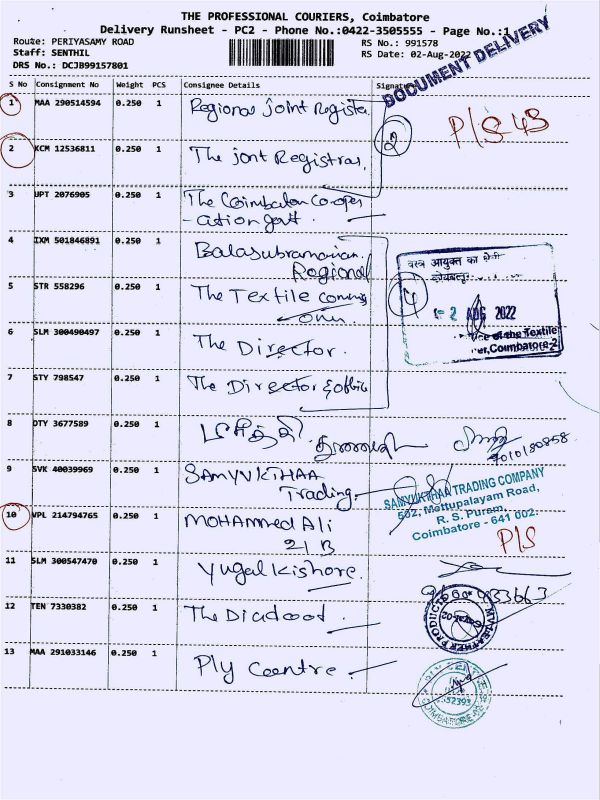 THE PROFESSIONAL COURIERS, Coimbatore
Delivery Runsheet - PC2 - Phone No.:0422-3505555 - Page No.:1
Route: PERIYASAMY ROAD
RS No.: 991578
Staff: SENTHIL
RS Date: 02-Aug-2022
DRS No.: DCJB99157801
DOCUMENT DELIVERY
S No Consignment No Weight PCS Consignee Details Signature
1 MAA 290514594 0.250 1 Regional Joint Registe
P/S 4B
2 KCM 12536811 0.250 1 The joint Registrar.
2
3 UPT 2076905 0.250 1 The Coimbatore Co-oper
-ation
4 IXM 501846891 0.250 1 Balasubramanian.
Regional
वस्त्र आयुक्त का
5 STR 558296 0.250 1 The Textile Commi
4
- 2 AUG 2022
6 SLM 300490497 0.250 1 The Director.
of the Textile
er, Coimbatore-2
7 STY 798547 0.250 1 The Director &
8 DTY 3677589 0.250 1
9 SVK 40039969 0.250 1 SAMYUKTHAA
Trading
SAMYUKTHAA TRADING COMPANY
502, Mettupalayam Road,
R. S. Puram,
Coimbatore - 641 002.
10 VPL 214794765 0.250 1 Mohammed Ali
21 B
P/S
11 SLM 300547470 0.250 1 Yugal Kishore.
12 TEN 7330382 0.250 1 The
13 MAA 291033146 0.250 1 Ply Centre